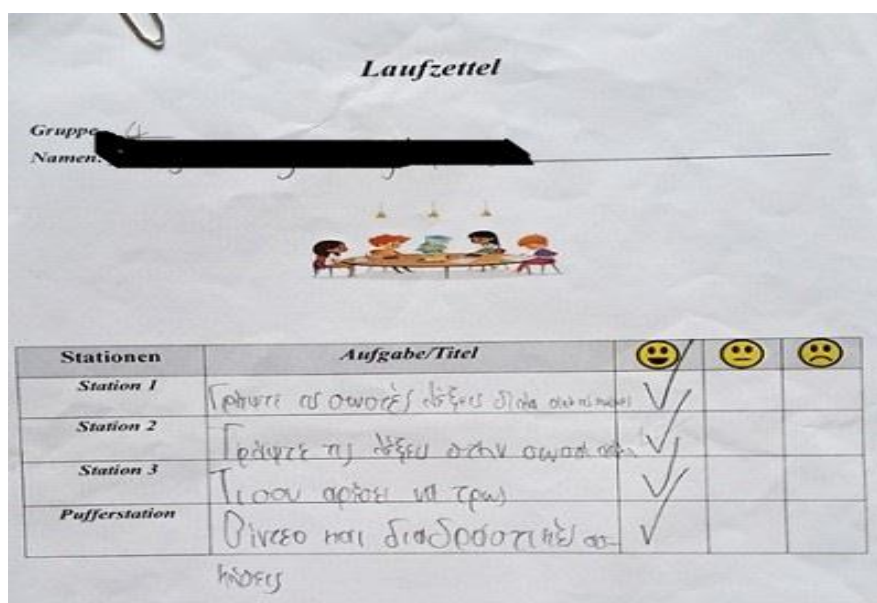 Laufzettel
Gruppe 4
Namen:
Stationen Aufgabe/Titel
Station 1 Γράψτε τις σωστές λέξεις δίπλα
Station 2 Γράψτε τις λέξεις στην σωστή
Station 3 Τι σου αρέσει να τρως
Pufferstation Βίντεο και διαδραστικές ασ-
κήσεις